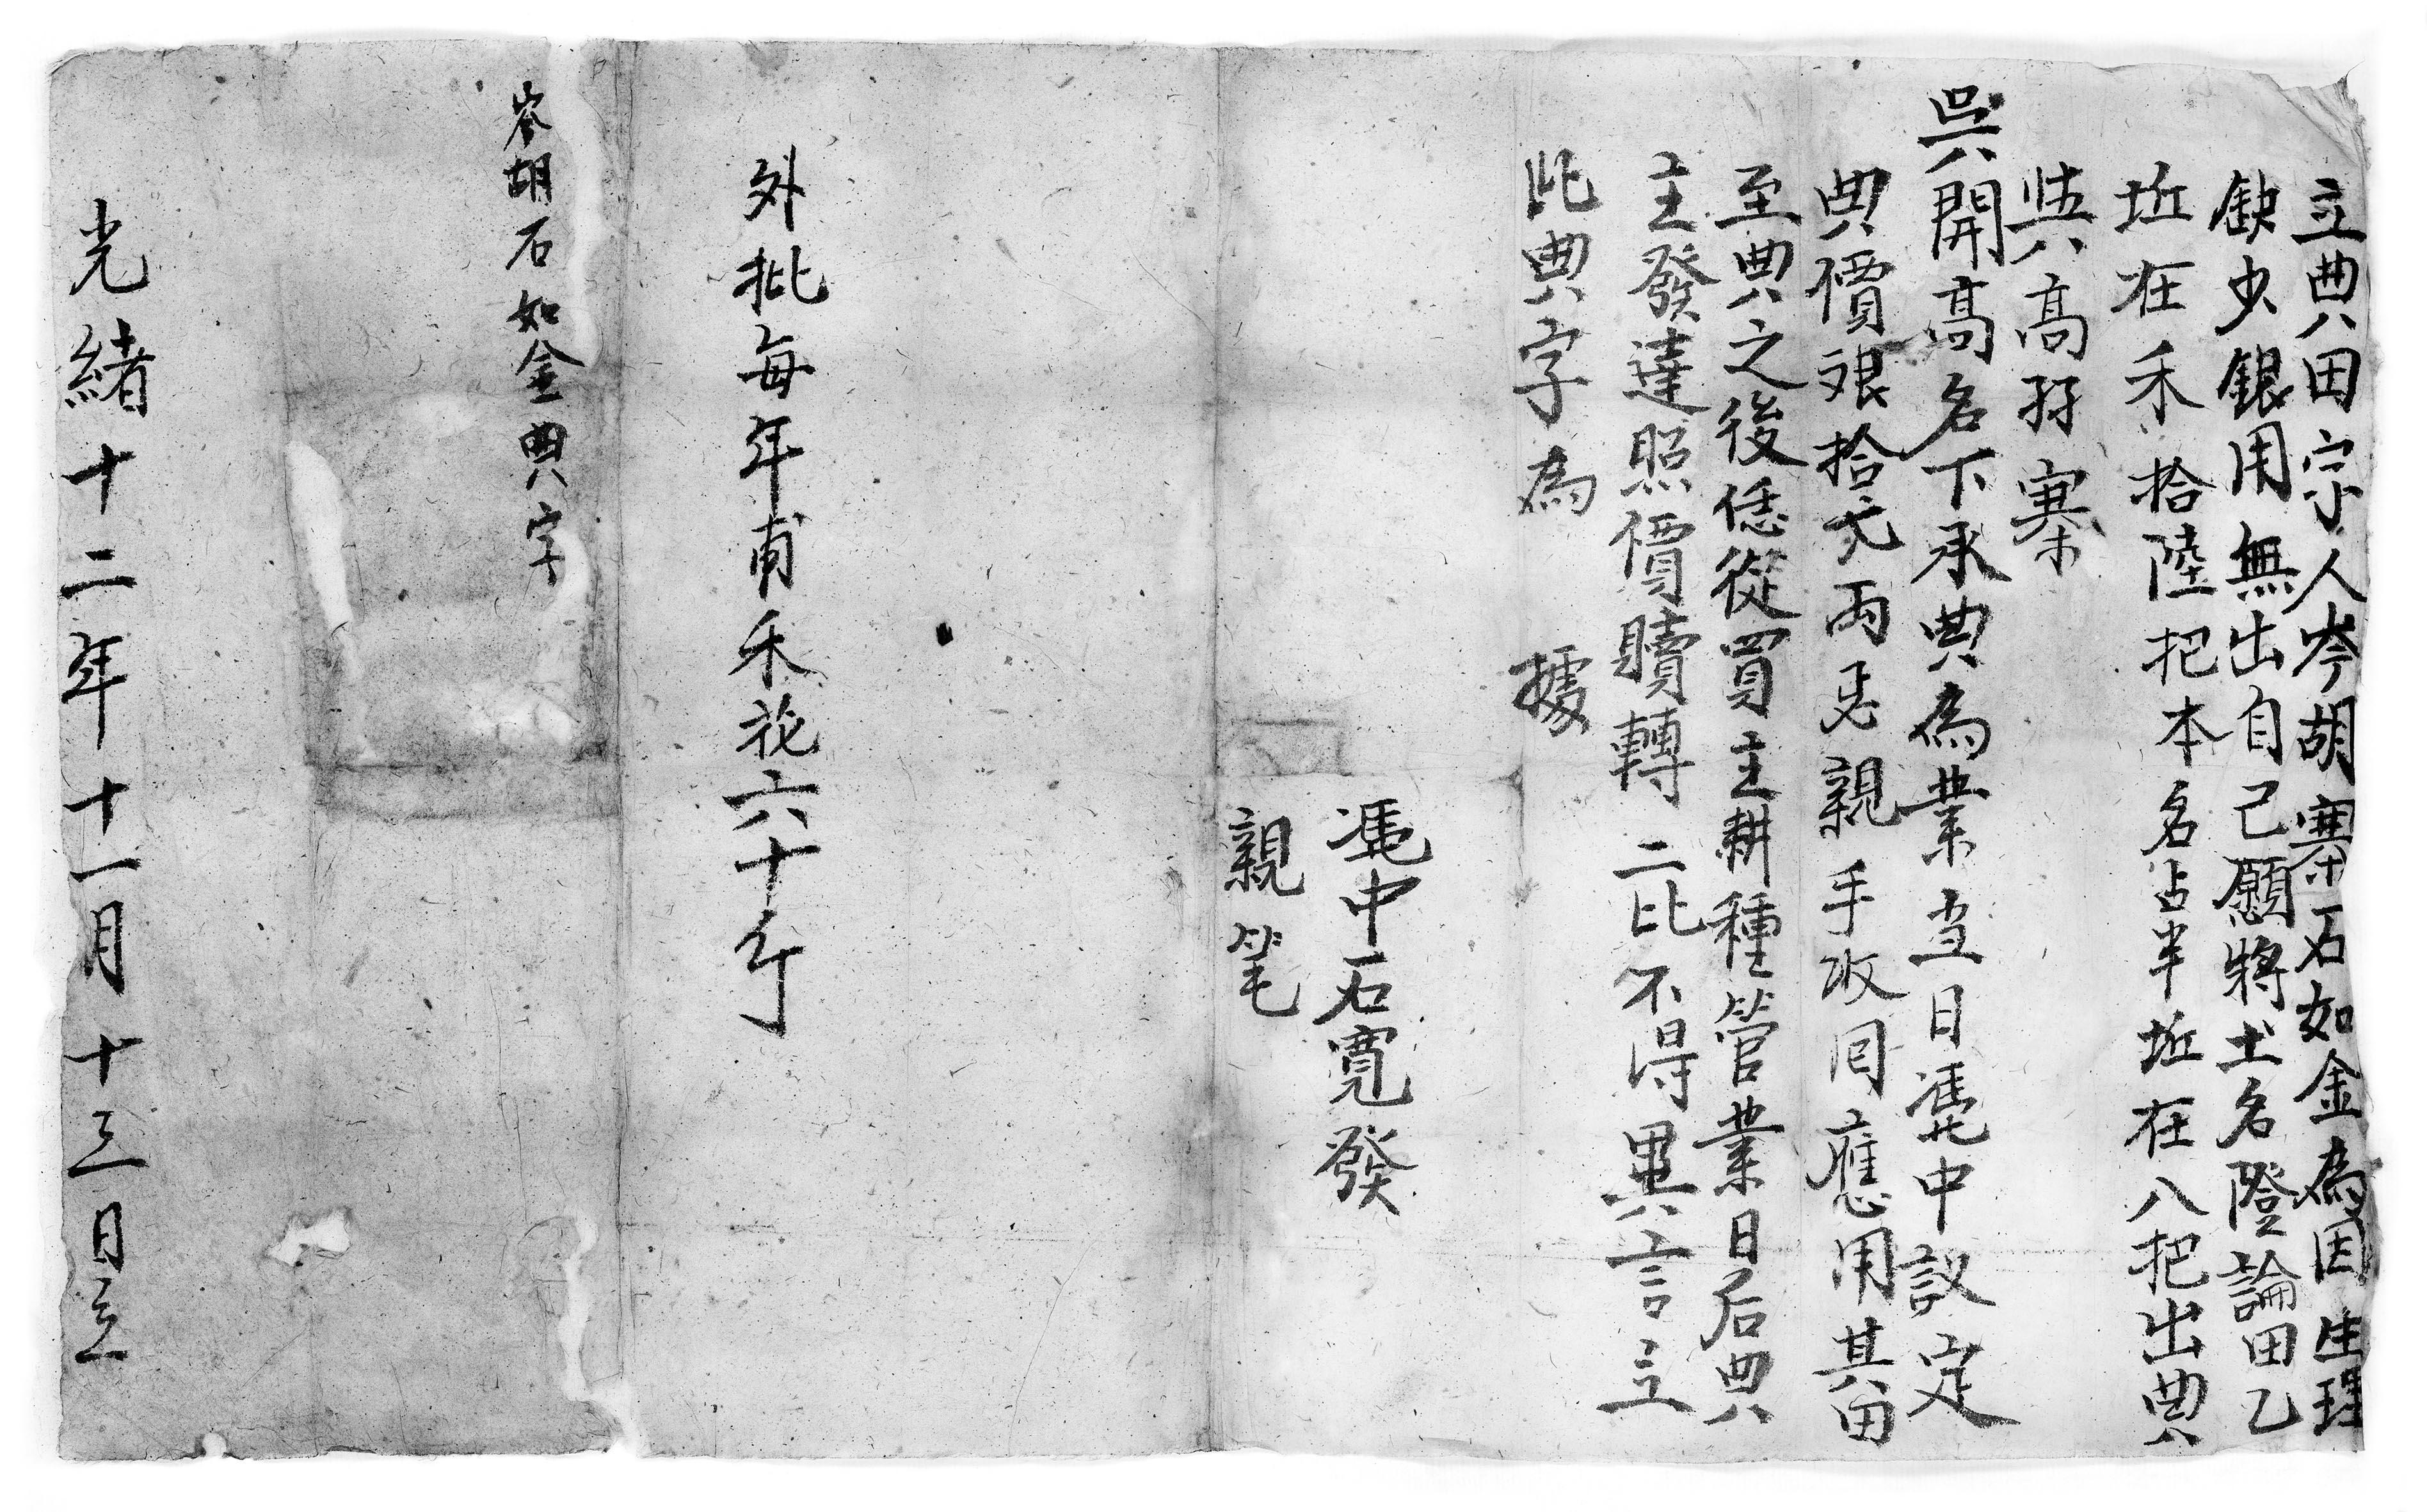 立典田字人岑胡寨石如金為因生理
缺少銀用無出自己願將土名隥論田乙
坵在禾拾陸把本名占半坵在八把出典
與高孖寨
吳開高名下承典為業当日凴中議定
典價艮拾元両足親手收囘應用其田
至典之後恁從買主耕種管業日后典
主發達照價贖轉二比不得異言立
此典字為據
凴中石寬發
親笔
外批每年甫禾花六十斤
岑胡石如金典字
光緒十二年十一月十三日立